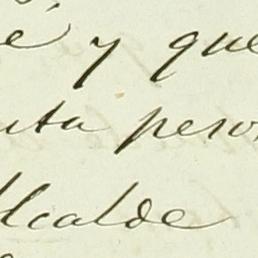 e y que
nta pesos
Alcalde